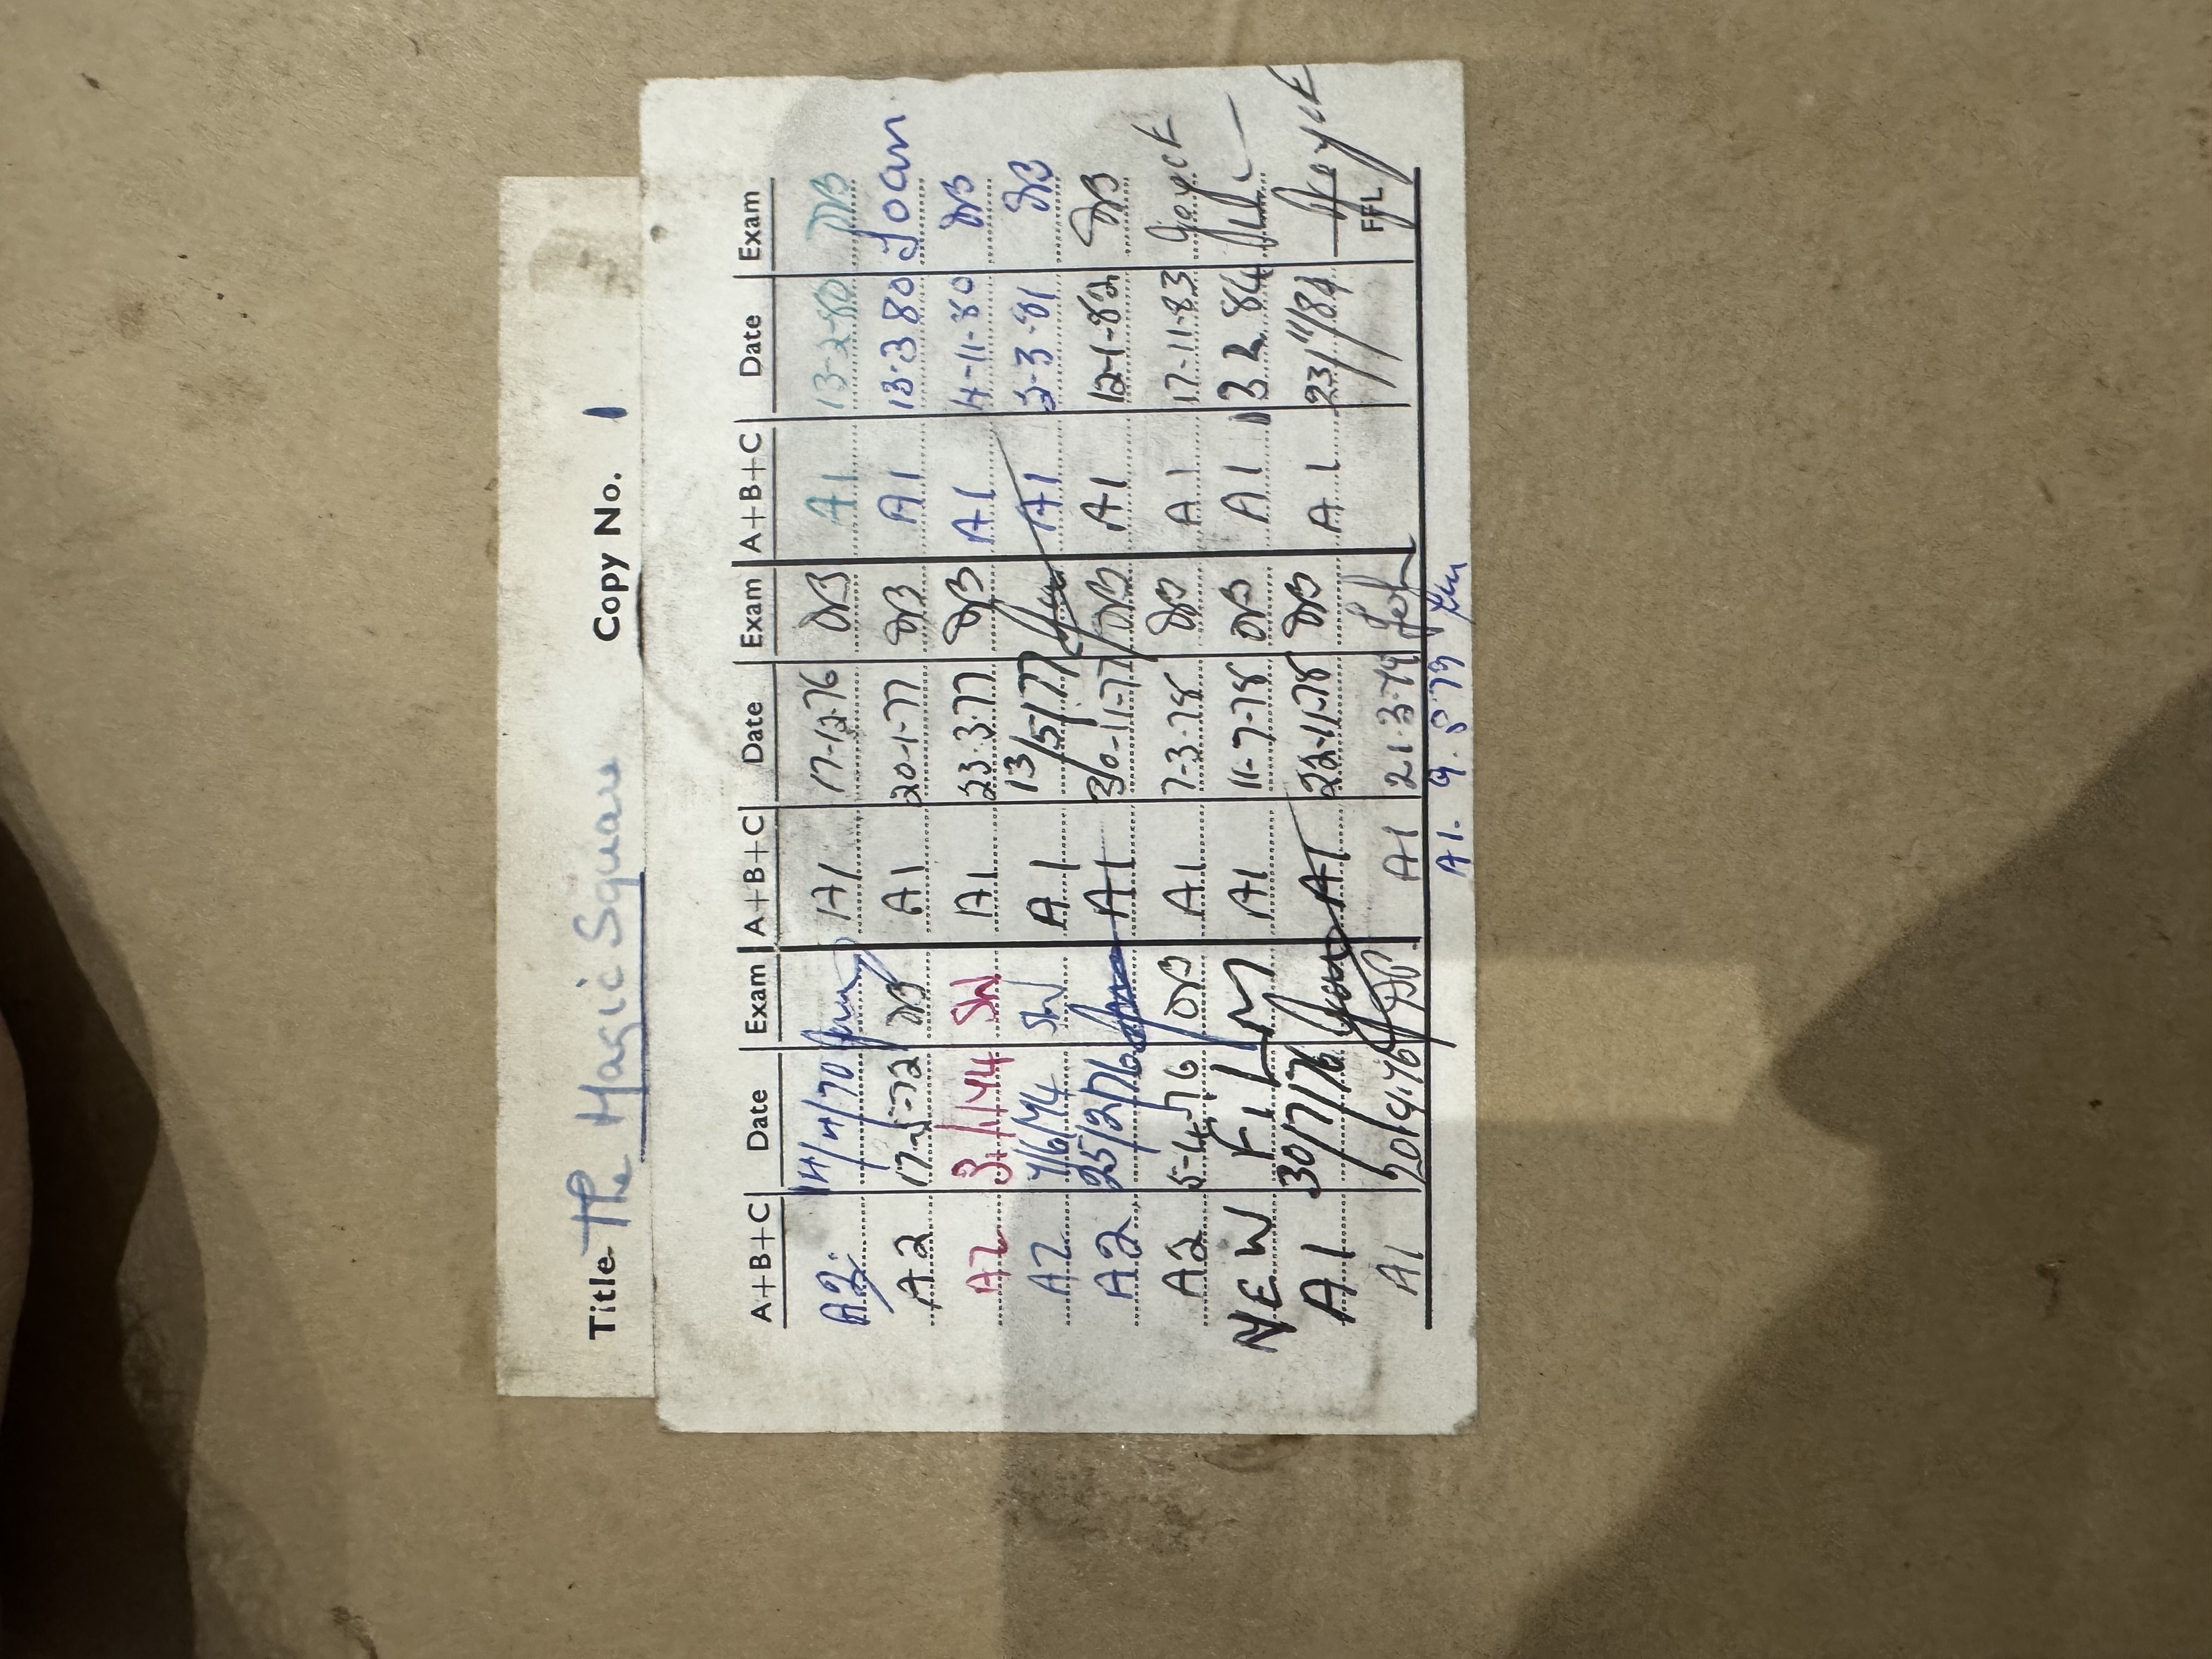 Title The Magic Square Copy No. 1
A+B+C Date Exam A+B+C Date Exam A+B+C Date Exam
A2. 14/4/70 A1 17-12-76 DB A1 13-2-80 DB
A2 72 DB A1 20-1-77 DB A1 13-3-80 Joan
A2 3/1/74 SW A1 23-3-77 DB A1 4-11-80 DB
A2 SW A1 13/5/77 A1 2-3-81 DB
A2 25/2/76 A1 30-11-77 DB A1 12-1-82 DB
A2 5-4-76 DB A1 7-3-78 DB A1 17-11-83
NEW FILM A1 11-7-78 DB A1 13 2 84
A1 30/7/76 A1 22-11-78 DB A1 23/11/84
A1 20/9/76 A1 21.3.79 FFL
A1. 9.8.79